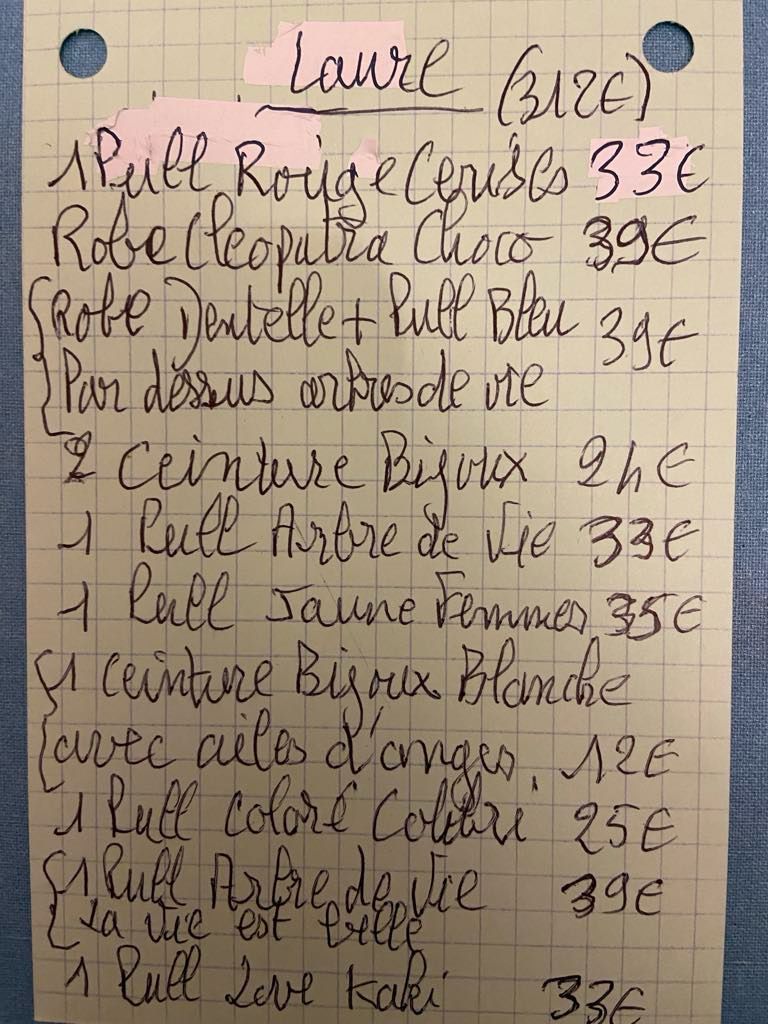 Laure (312€)
1 Pull Rouge Cerises 33€
Robe Cleopatra Choco 39€
Robe Dentelle + Pull Bleu 39€
Par dessus arbres de vie
2 Ceinture Bijoux 24€
1 Pull Arbre de Vie 33€
1 Pull Jaune Femmes 35€
1 Ceinture Bijoux Blanche
avec ailes d'anges. 12€
1 Pull Coloré Colibri 25€
1 Pull Arbre de Vie 39€
La Vie est belle
1 Pull Love Kaki 33€